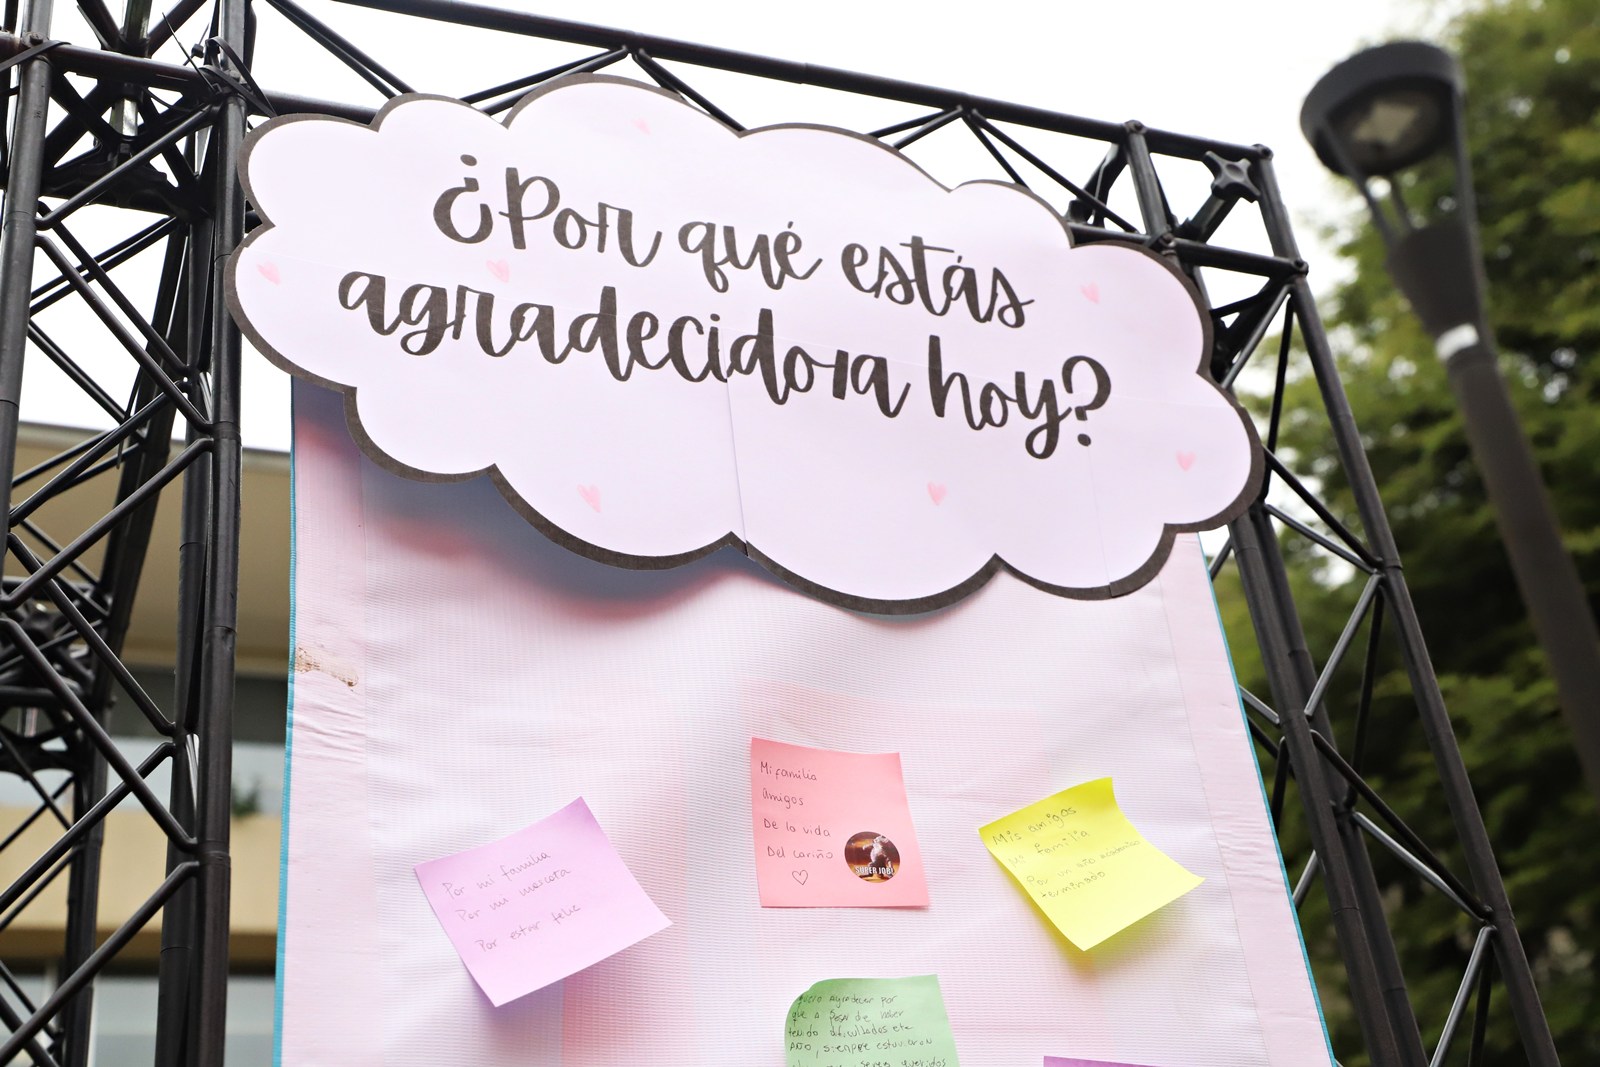 ¿Por qué estás
agradecidora hoy?
Mi familia
Amigos
De la vida
Del cariño
♡
SUPER JOB!
Mis amigos
Mi familia
Por un año académico
terminado
Por mi familia
Por mi mascota
Por estar feliz
Quiero agradecer por
que a pesar de haber
tenido dificultades este
AÑO, siempre estuvieron
seres queridos